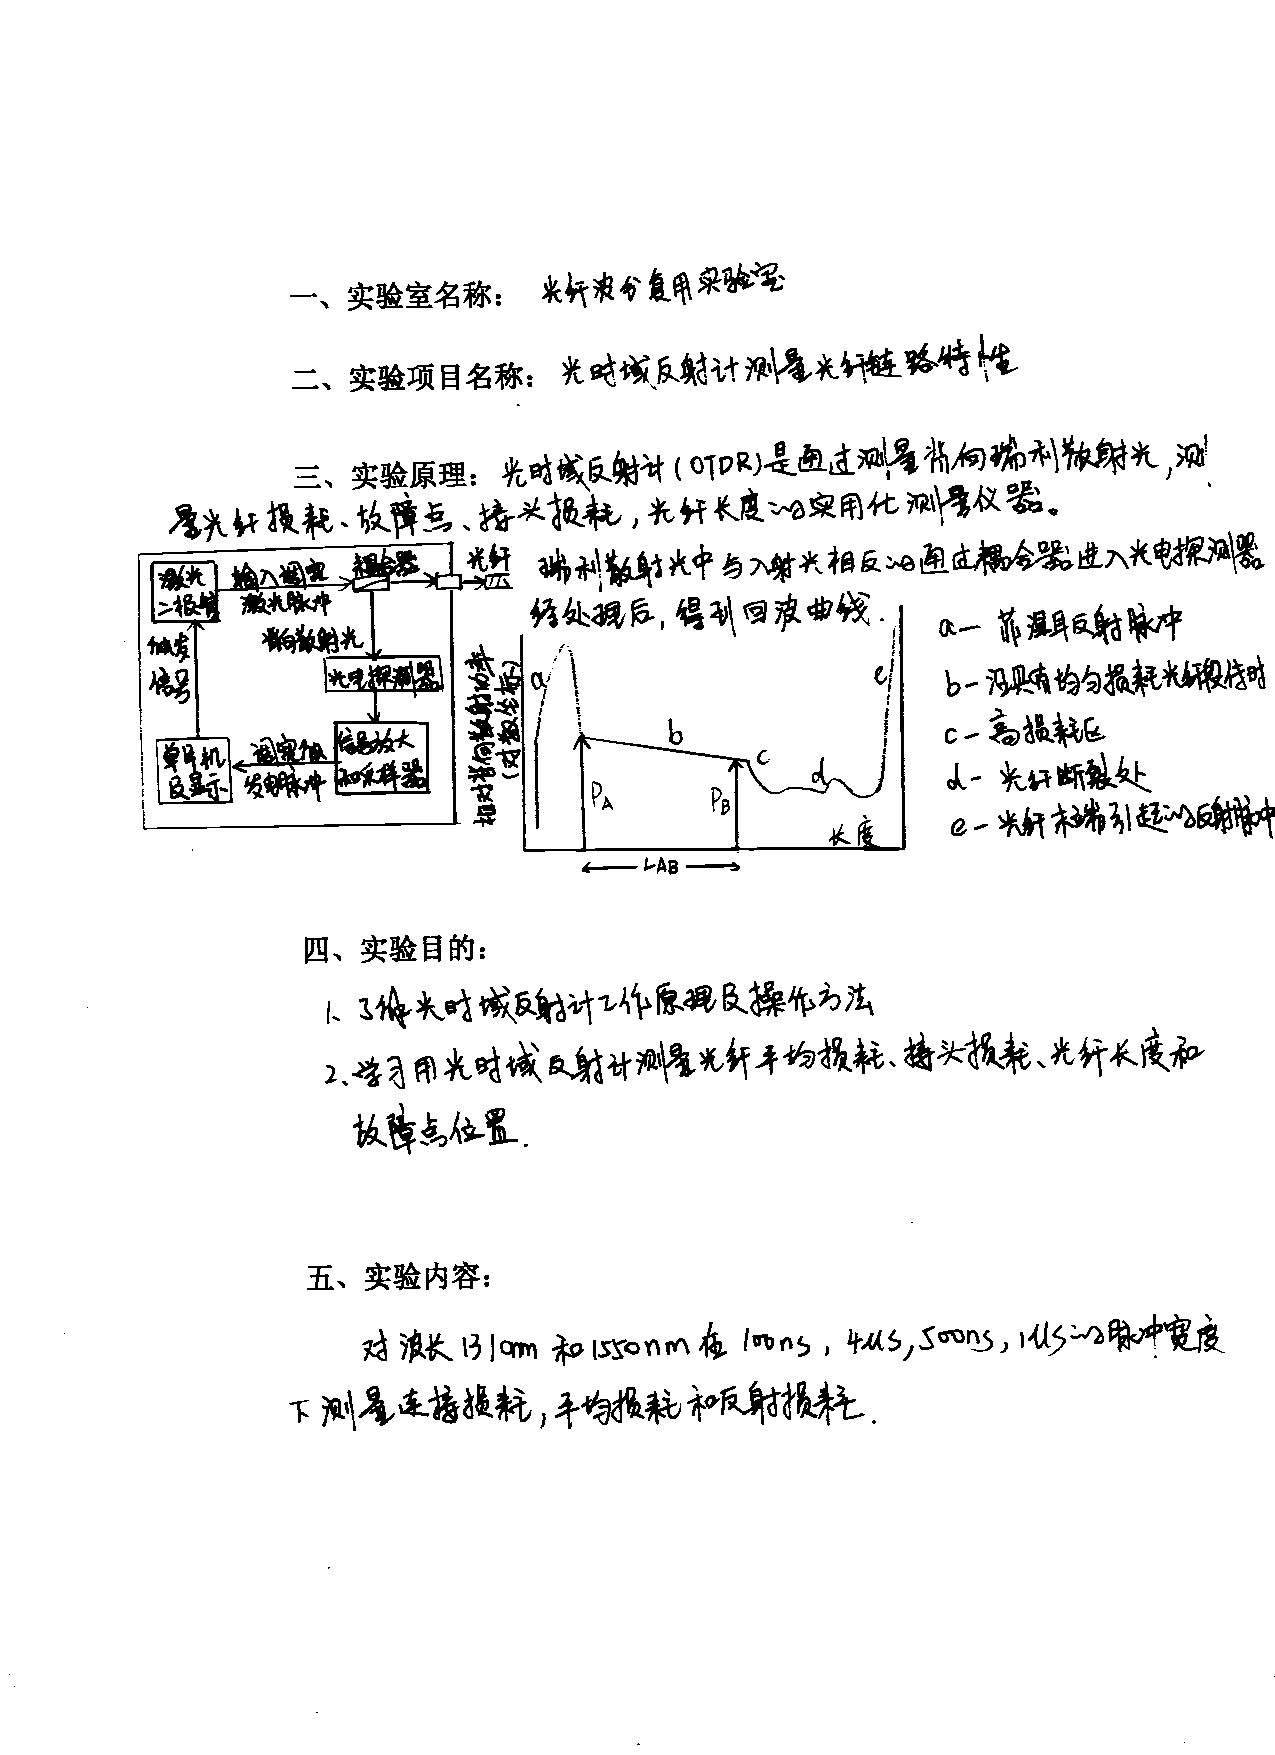 一、实验室名称： 光纤波分复用实验室
二、实验项目名称：光时域反射计测量光纤链路特性
三、实验原理：光时域反射计(OTDR)是通过测量背向瑞利散射光,测
量光纤损耗、故障点、接头损耗,光纤长度的实用化测量仪器。
瑞利散射光中与入射光相反的通过耦合器进入光电探测器
经处理后,得到回波曲线.
激光
二极管
输入调宽
激光脉冲
耦合器
光纤
背向散射光
触发
信号
光电探测器
单片机
及显示
调宽触
发电脉冲
信号放大
和采样器
相对背向散射功率
(对数坐标)
a
b
c
d
e
PA
PB
长度
LAB
a— 菲涅耳反射脉冲
b—沿具有均匀损耗光纤段传时
c—高损耗区
d— 光纤断裂处
e—光纤末端引起的反射脉冲
四、实验目的：
1、了解光时域反射计工作原理及操作方法
2、学习用光时域反射计测量光纤平均损耗、接头损耗、光纤长度和
故障点位置.
五、实验内容：
对波长1310nm和1550nm在100ns, 4μs,500ns,1μs的脉冲宽度
下测量连接损耗,平均损耗和反射损耗.